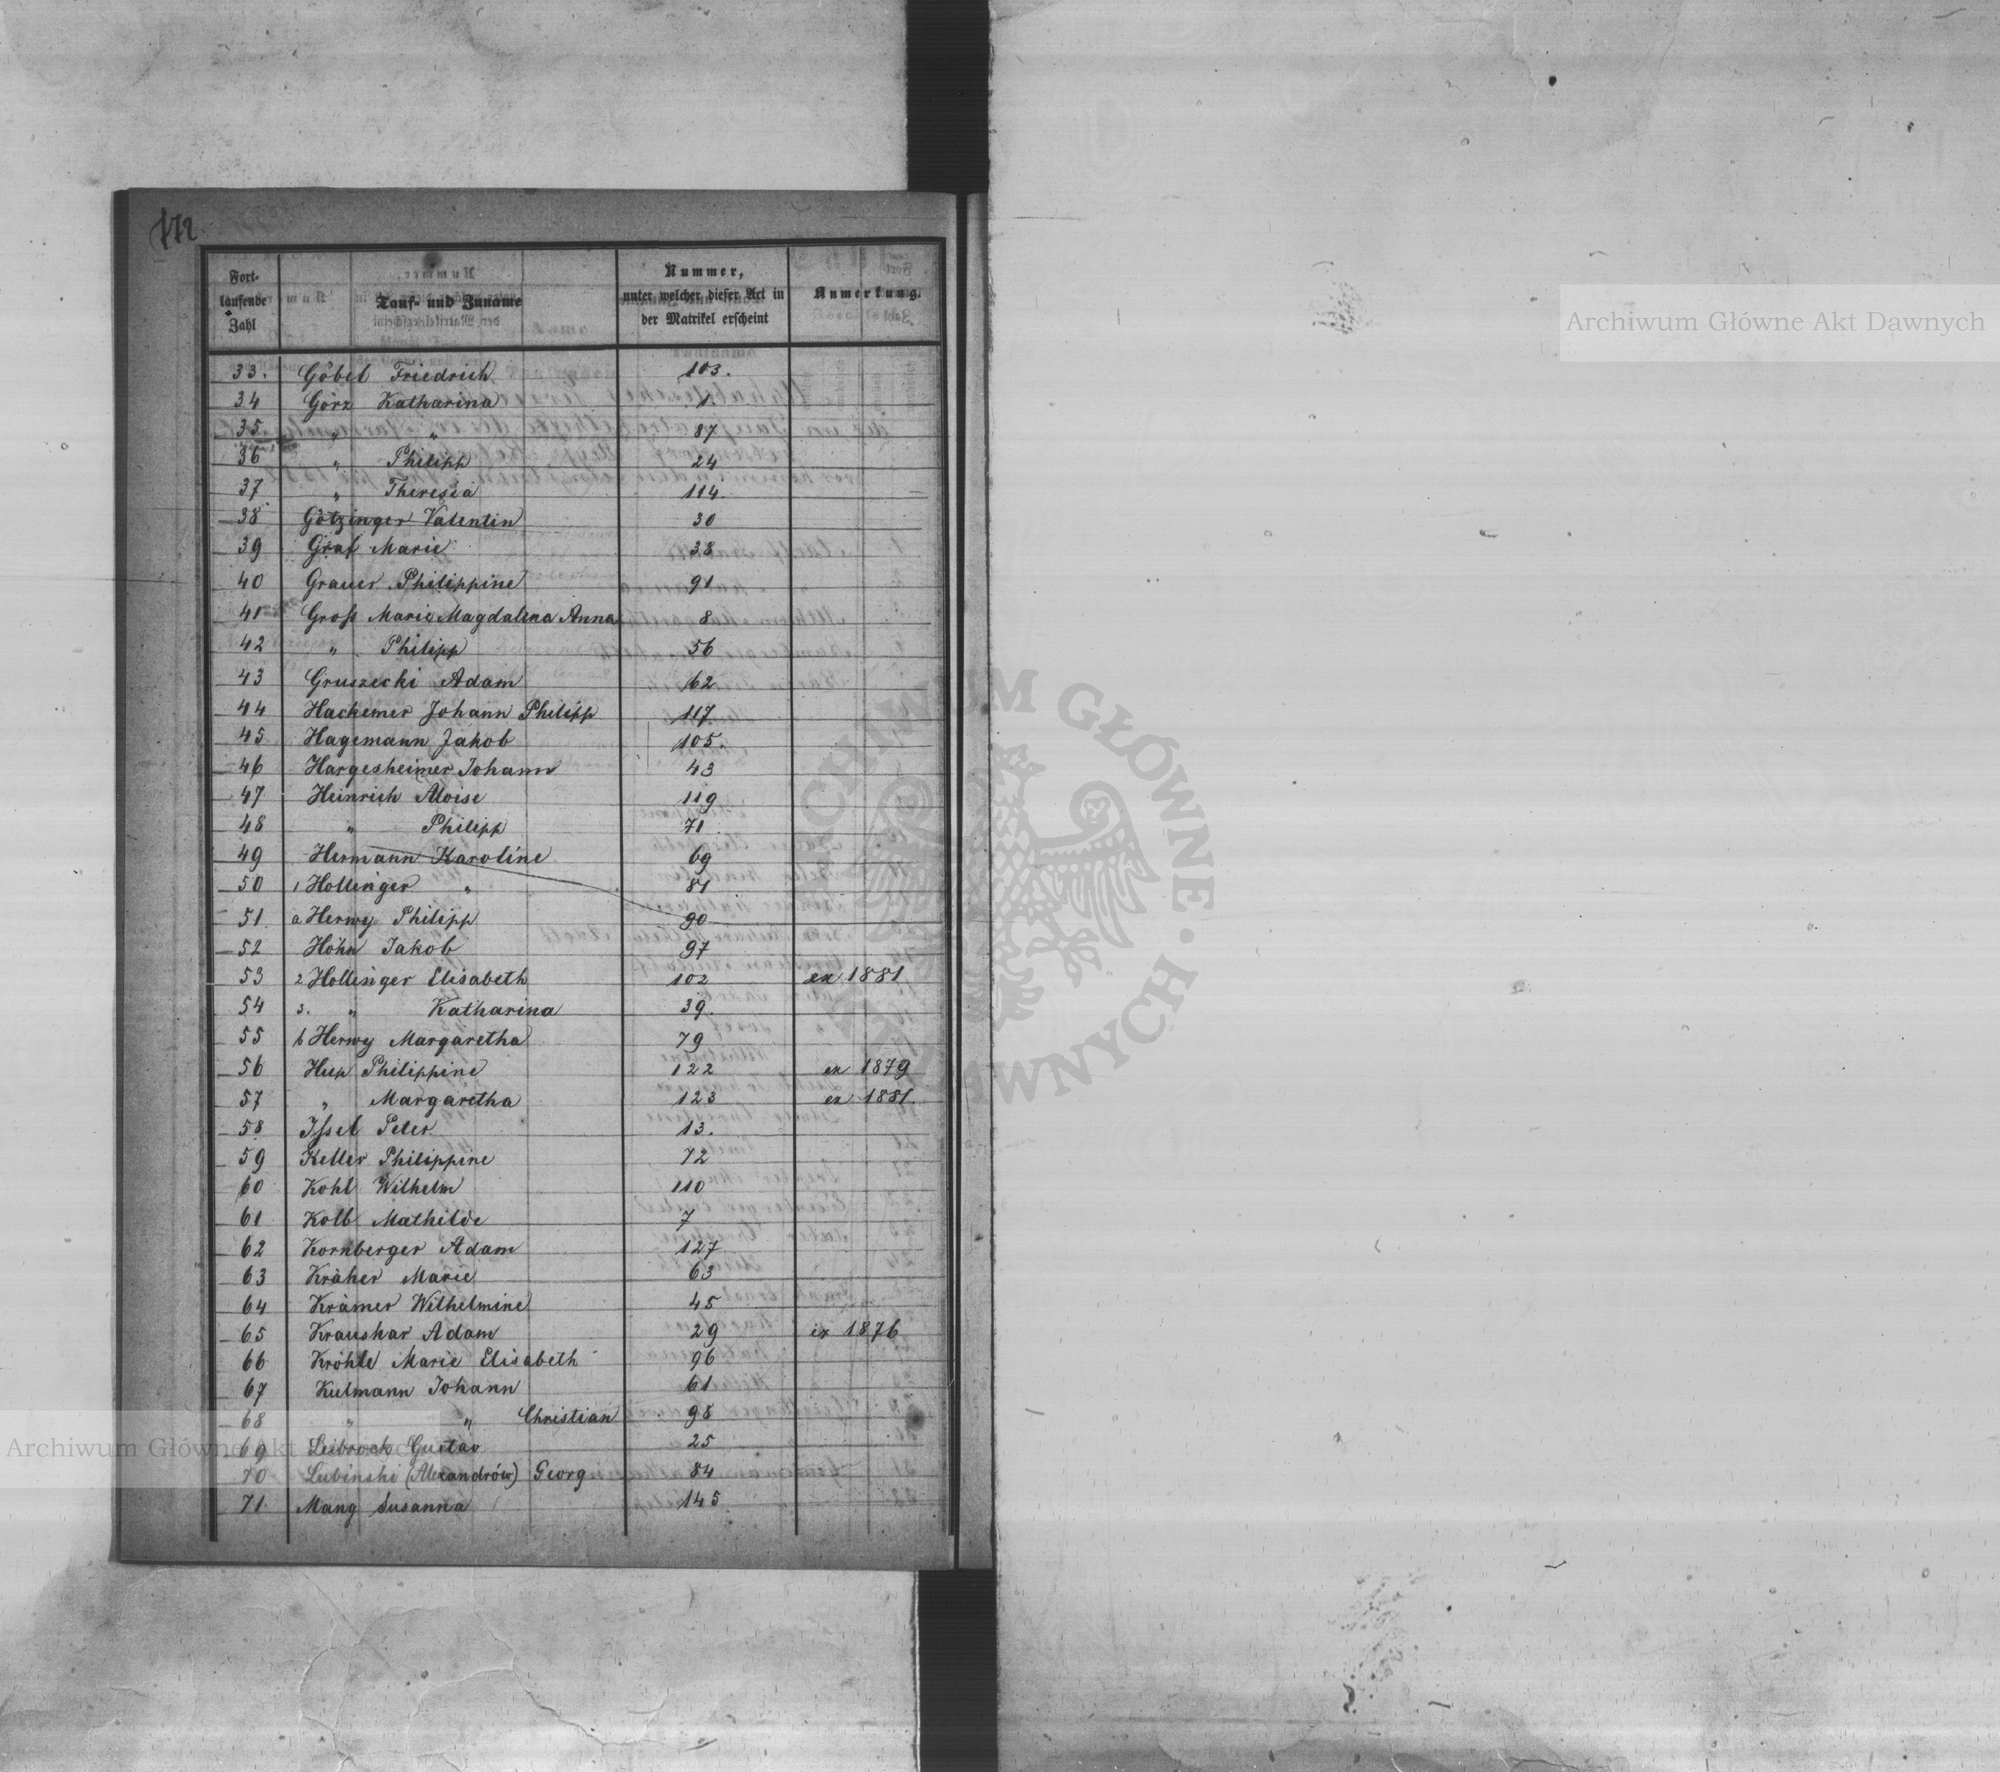 172
Fort-
laufende
Zahl
Tauf- und Zuname
Nummer,
unter welcher dieser Act in
der Matrikel erscheint
Anmerkung.
33. Göbel Friedrich 103.
34 Görz Katharina 1.
35. " " 87
36 " Philipp 24
37 " Theresia 114
38 Götzinger Valentin 30
39 Graf Marie 38
40 Grauer Philippine 91
41 Groß Marie Magdalena Anna 8
42 " Philipp 56
43 Gruszecki Adam 62
44 Hackemer Johann Philipp 117.
45 Hagemann Jakob 105.
46 Hargesheimer Johann 43
47 Heinrich Aloise 119
48 " Philipp 71
49 Hermann Karoline 69
50 1 Hollinger " 81
51 a Herwy Philipp 90
52 Höhn Jakob 97
53 2 Hollinger Elisabeth 102 ex 1881
54 3. " Katharina 39.
55 b Herwy Margaretha 79
56 Hup Philippine 122 ex 1879
57 " Margaretha 123 ex 1881.
58 Ißel Peter 13.
59 Keller Philippine 72
60 Kohl Wilhelm 110
61 Kolb Mathilde 7
62 Kornberger Adam 127
63 Kräher Marie 63
64 Krämer Wilhelmine 45
65 Kraushar Adam 29 ex 1876
66 Kröhle Marie Elisabeth 96
67 Kulmann Johann 61
68 " " Christian 98
69 Leibrock Gustav 25
70 Lubinski (Alexandrów) Georg 84
71. Mang Susanna 145
Archiwum Główne Akt Dawnych
Archiwum Główne Akt
ARCHIWUM GŁÓWNE AKT DAWNYCH